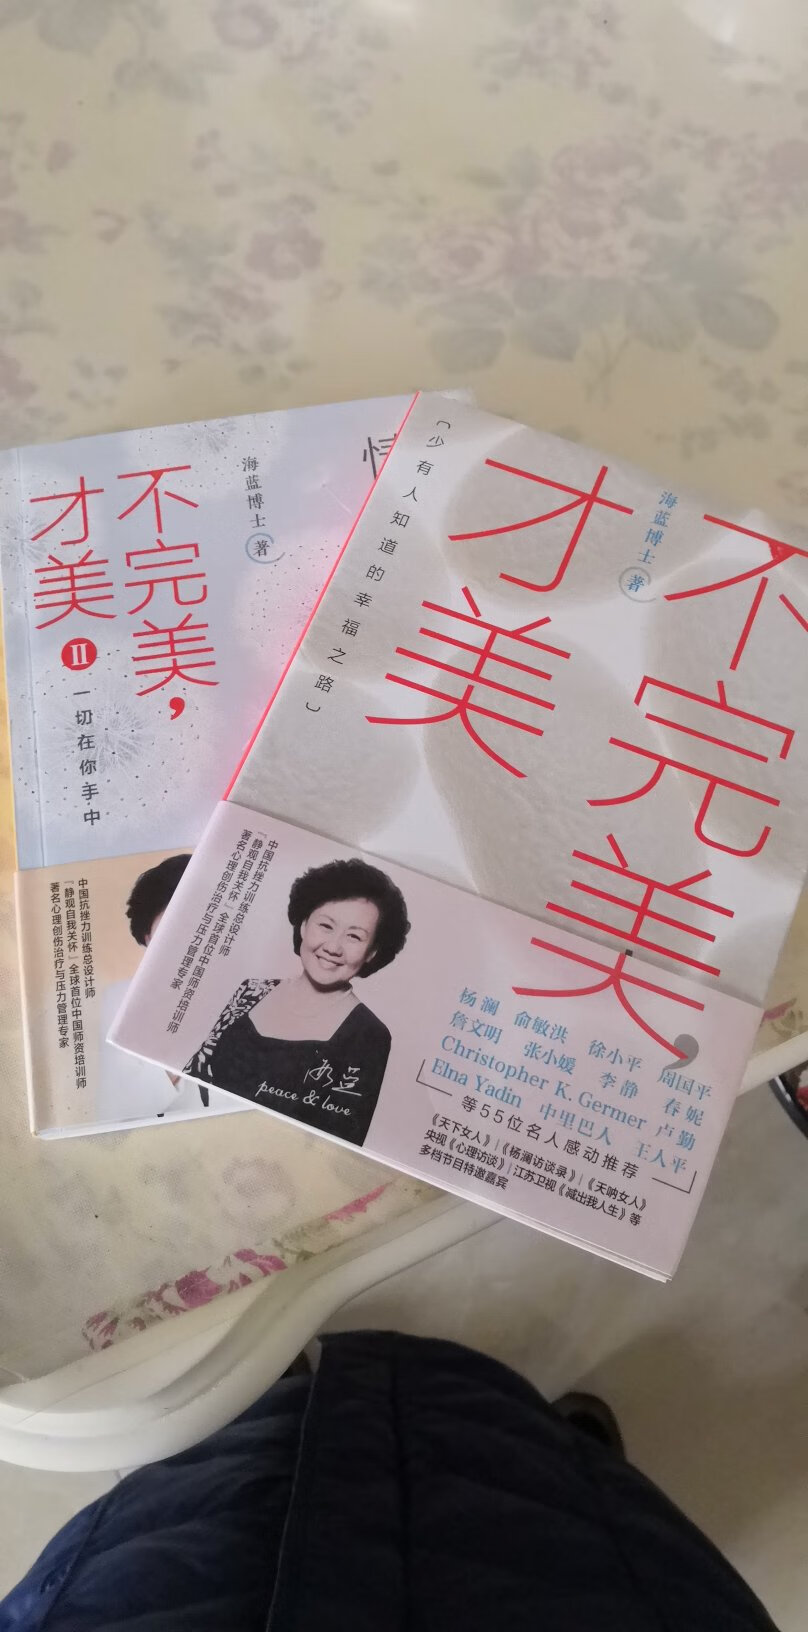 不完美，
才美
II
一切在你手中
海蓝博士 著
情
中国抗挫力训练总设计师
『静观自我关怀』全球首位中国师资培训师
著名心理创伤治疗与压力管理专家
不完美，
才美
海蓝博士 著
〔少有人知道的幸福之路〕
中国抗挫力训练总设计师
『静观自我关怀』全球首位中国师资培训师
著名心理创伤治疗与压力管理专家
海蓝
peace & love
杨澜 俞敏洪 徐小平 周国平
詹文明 张小媛 李静 春妮
Christopher K. Germer 卢勤
Elna Yadin 中里巴人 王人平
等55位名人感动推荐
《天下女人》|《杨澜访谈录》|《天呐女人》
央视《心理访谈》|江苏卫视《减出我人生》等
多档节目特邀嘉宾